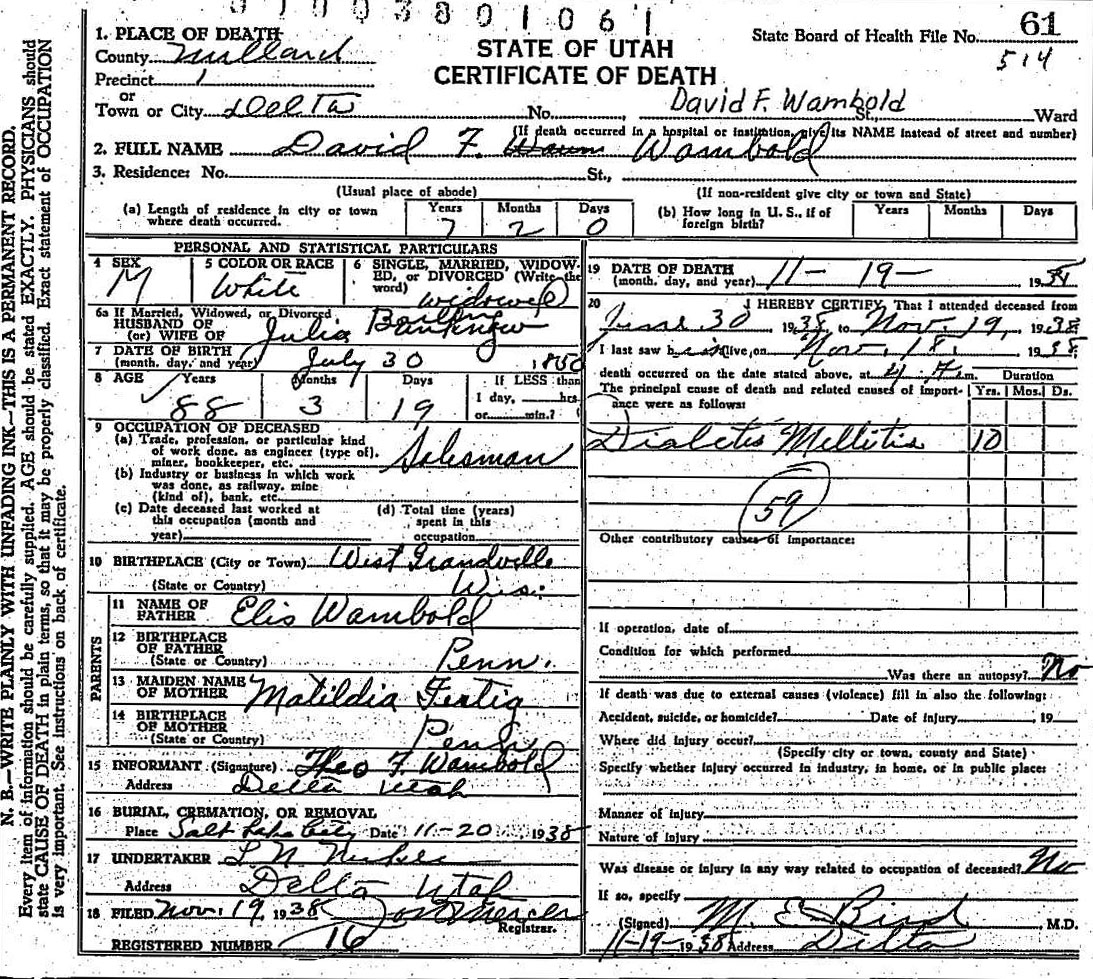 0 1 0 0 3 8 0 1 0 6 1
61
State Board of Health File No.
514
STATE OF UTAH
CERTIFICATE OF DEATH
1. PLACE OF DEATH
County Millard
Precinct 1
or
Town or City Delta No. St., Ward
David F. Wambold
(If death occurred in a hospital or institution, give its NAME instead of street and number)
2. FULL NAME David F. Wambold
3. Residence: No. St.,
(Usual place of abode) (If non-resident give city or town and State)
(a) Length of residence in city or town where death occurred. Years 7 Months 2 Days 0
(b) How long in U. S., if of foreign birth? Years Months Days
PERSONAL AND STATISTICAL PARTICULARS
4 SEX M
5 COLOR OR RACE White
6 SINGLE, MARRIED, WIDOWED, or DIVORCED (Write the word) widowed
6a If Married, Widowed, or Divorced
HUSBAND OF
(or) WIFE OF Julia
7 DATE OF BIRTH
(month, day, and year) July 30 1850
8 AGE Years 88 Months 3 Days 19
If LESS than
1 day, hrs
or min.?
9 OCCUPATION OF DECEASED
(a) Trade, profession, or particular kind
of work done, as engineer (type of),
miner, bookkeeper, etc. Salesman
(b) Industry or business in which work
was done, as railway, mine
(kind of), bank, etc.
(c) Date deceased last worked at
this occupation (month and
year)
(d) Total time (years)
spent in this
occupation
10 BIRTHPLACE (City or Town) West Grandville
(State or Country) Wis.
PARENTS
11 NAME OF
FATHER Elis Wambold
12 BIRTHPLACE
OF FATHER
(State or Country) Penn.
13 MAIDEN NAME
OF MOTHER Matildia Fertig
14 BIRTHPLACE
OF MOTHER
(State or Country) Penn
15 INFORMANT (Signature) Theo F. Wambold
Address Delta Utah
16 BURIAL, CREMATION, OR REMOVAL
Place Salt Lake City Date 11-20 1938
17 UNDERTAKER
Address Delta Utah
18 FILED Nov. 19, 1938
Registrar.
REGISTERED NUMBER 16
19 DATE OF DEATH
(month, day, and year) 11-19- 19
20 I HEREBY CERTIFY, That I attended deceased from
June 30 1938 to Nov. 19, 1938
I last saw him alive on Nov. 18, 1938
death occurred on the date stated above, at m. Duration
The principal cause of death and related causes of importance were as follows: Yrs. Mos. Ds.
Diabetis Mellitis 10
59
Other contributory causes of importance:
If operation, date of
Condition for which performed
Was there an autopsy? No
If death was due to external causes (violence) fill in also the following:
Accident, suicide, or homicide? Date of injury , 19
Where did injury occur?
(Specify city or town, county and State)
Specify whether injury occurred in industry, in home, or in public place:
Manner of injury
Nature of injury
Was disease or injury in any way related to occupation of deceased? No
If so, specify
(Signed) M. E. Bird M.D.
11-19-1938 Address Delta
N. B.—WRITE PLAINLY WITH UNFADING INK—THIS IS A PERMANENT RECORD.
Every item of information should be carefully supplied. AGE should be stated EXACTLY. PHYSICIANS should
state CAUSE OF DEATH in plain terms, so that it may be properly classified. Exact statement of OCCUPATION
is very important. See instructions on back of certificate.